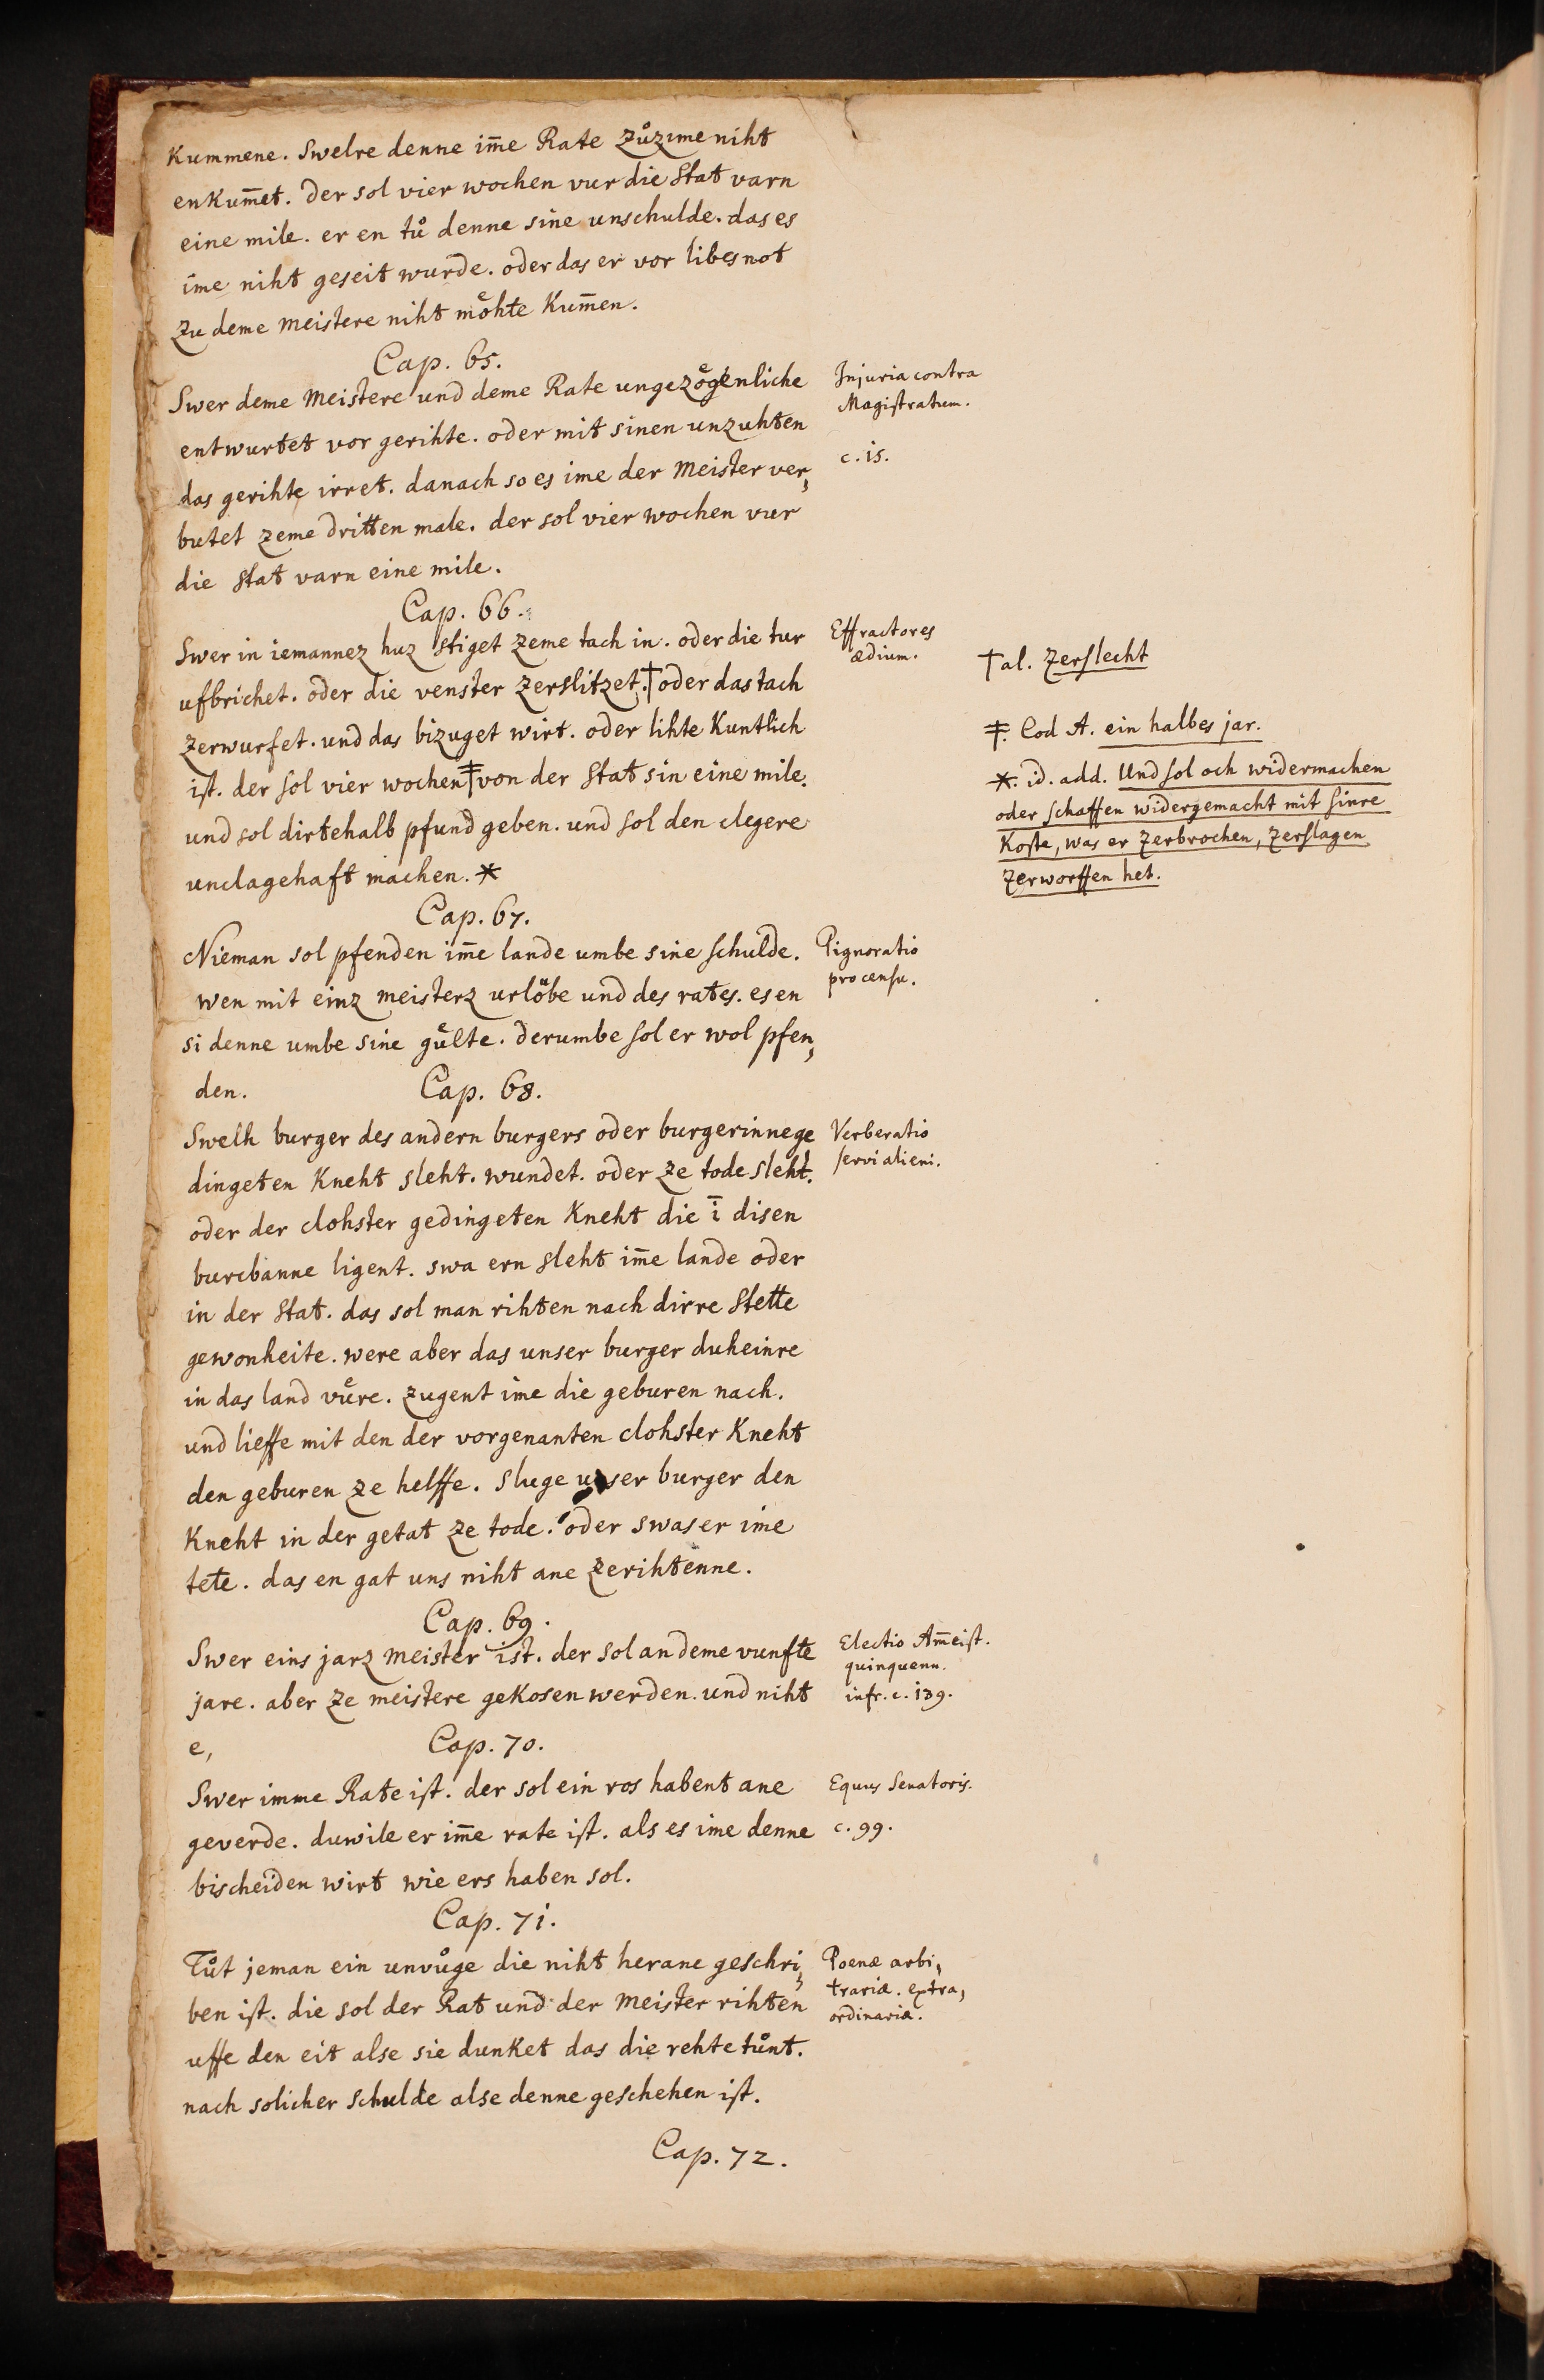 Kummene. Swelre denne im̄e Rate zů zime niht
en Kum̄et. der sol vier wochen vur die Stat varn
eine mile. er en tů denne sine unschulde. das es
ime niht geseit wurde. oder das er vor libes not
zu deme meistere niht moͤhte Kum̄en.
Cap. 65.
Swer deme Meistere und deme Rate ungezoͤgenliche
entwurtet vor gerihte. oder mit sinen unzuhten
das gerihte irret. danach so es ime der Meister ver,
butet zeme dritten male. der sol vier wochen vur
die Stat varn eine mile.
Injuria contra
Magistratum.
c. 15.
Cap. 66.
Swer in iemannez huz stiget zeme tach in. oder die tur
ufbrichet. oder die venster zerslitzet.† oder das tach
zerwurfet. und das bizuget wirt. oder lihte Kuntlich
ist. der sol vier wochen ‡ von der Stat sin eine mile.
und sol dirtehalb pfund geben. und sol den clegere
unclagehaft machen. *
Effractores
ædium.
† al. zerslecht
‡. Cod A. ein halbes jar.
*. id. add. Und sol och widermachen
oder schaffen widergemacht mit sinre
Koste, was er zerbrochen, zerslagen
zerworffen het.
Cap. 67.
Nieman sol pfenden im̄e lande umbe sine schulde.
wen mit einz meisterz urloͤbe und des rates. es en
si denne umbe sine guͤlte. derumbe sol er wol pfen,
den.
Pignoratio
pro censu.
Cap. 68.
Swelh burger des andern burgers oder burgerinne ge
dingeten Kneht sleht. wundet. oder ze tode sleht.
oder der clohster gedingeten Kneht die ī disen
burcbanne ligent. swa ern sleht im̄e lande oder
in der Stat. das sol man rihten nach dirre Stette
gewonheite. were aber das unser burger duheinre
in das land vuͤre. zugent ime die geburen nach.
und lieffe mit den der vorgenanten clohster Kneht
den geburen ze helffe. Sluge unser burger den
Kneht in der getat ze tode. oder swas er ime
tete. das en gat uns niht ane zerihtenne.
Verberatio
servi alieni.
Cap. 69.
Swer eins jarz Meister ist. der sol an deme vunfte
jare. aber ze meistere geKosen werden. und niht
e,
Electio Am̄eist.
quinquenn.
infr. c. 139.
Cap. 70.
Swer imme Rate ist. der sol ein ros habent ane
geverde. duwile er im̄e rate ist. als es ime denne
bischeiden wirt wie ers haben sol.
Equus Senatoris.
c. 99.
Cap. 71.
Tůt jeman ein unvůge die niht herane geschri,
ben ist. die sol der Rat und der Meister rihten
uffe den eit alse sie dunket das die rehte tůnt.
nach solicher schulde alse denne geschehen ist.
Poenæ arbi,
trariæ. extra,
ordinariæ.
Cap. 72.